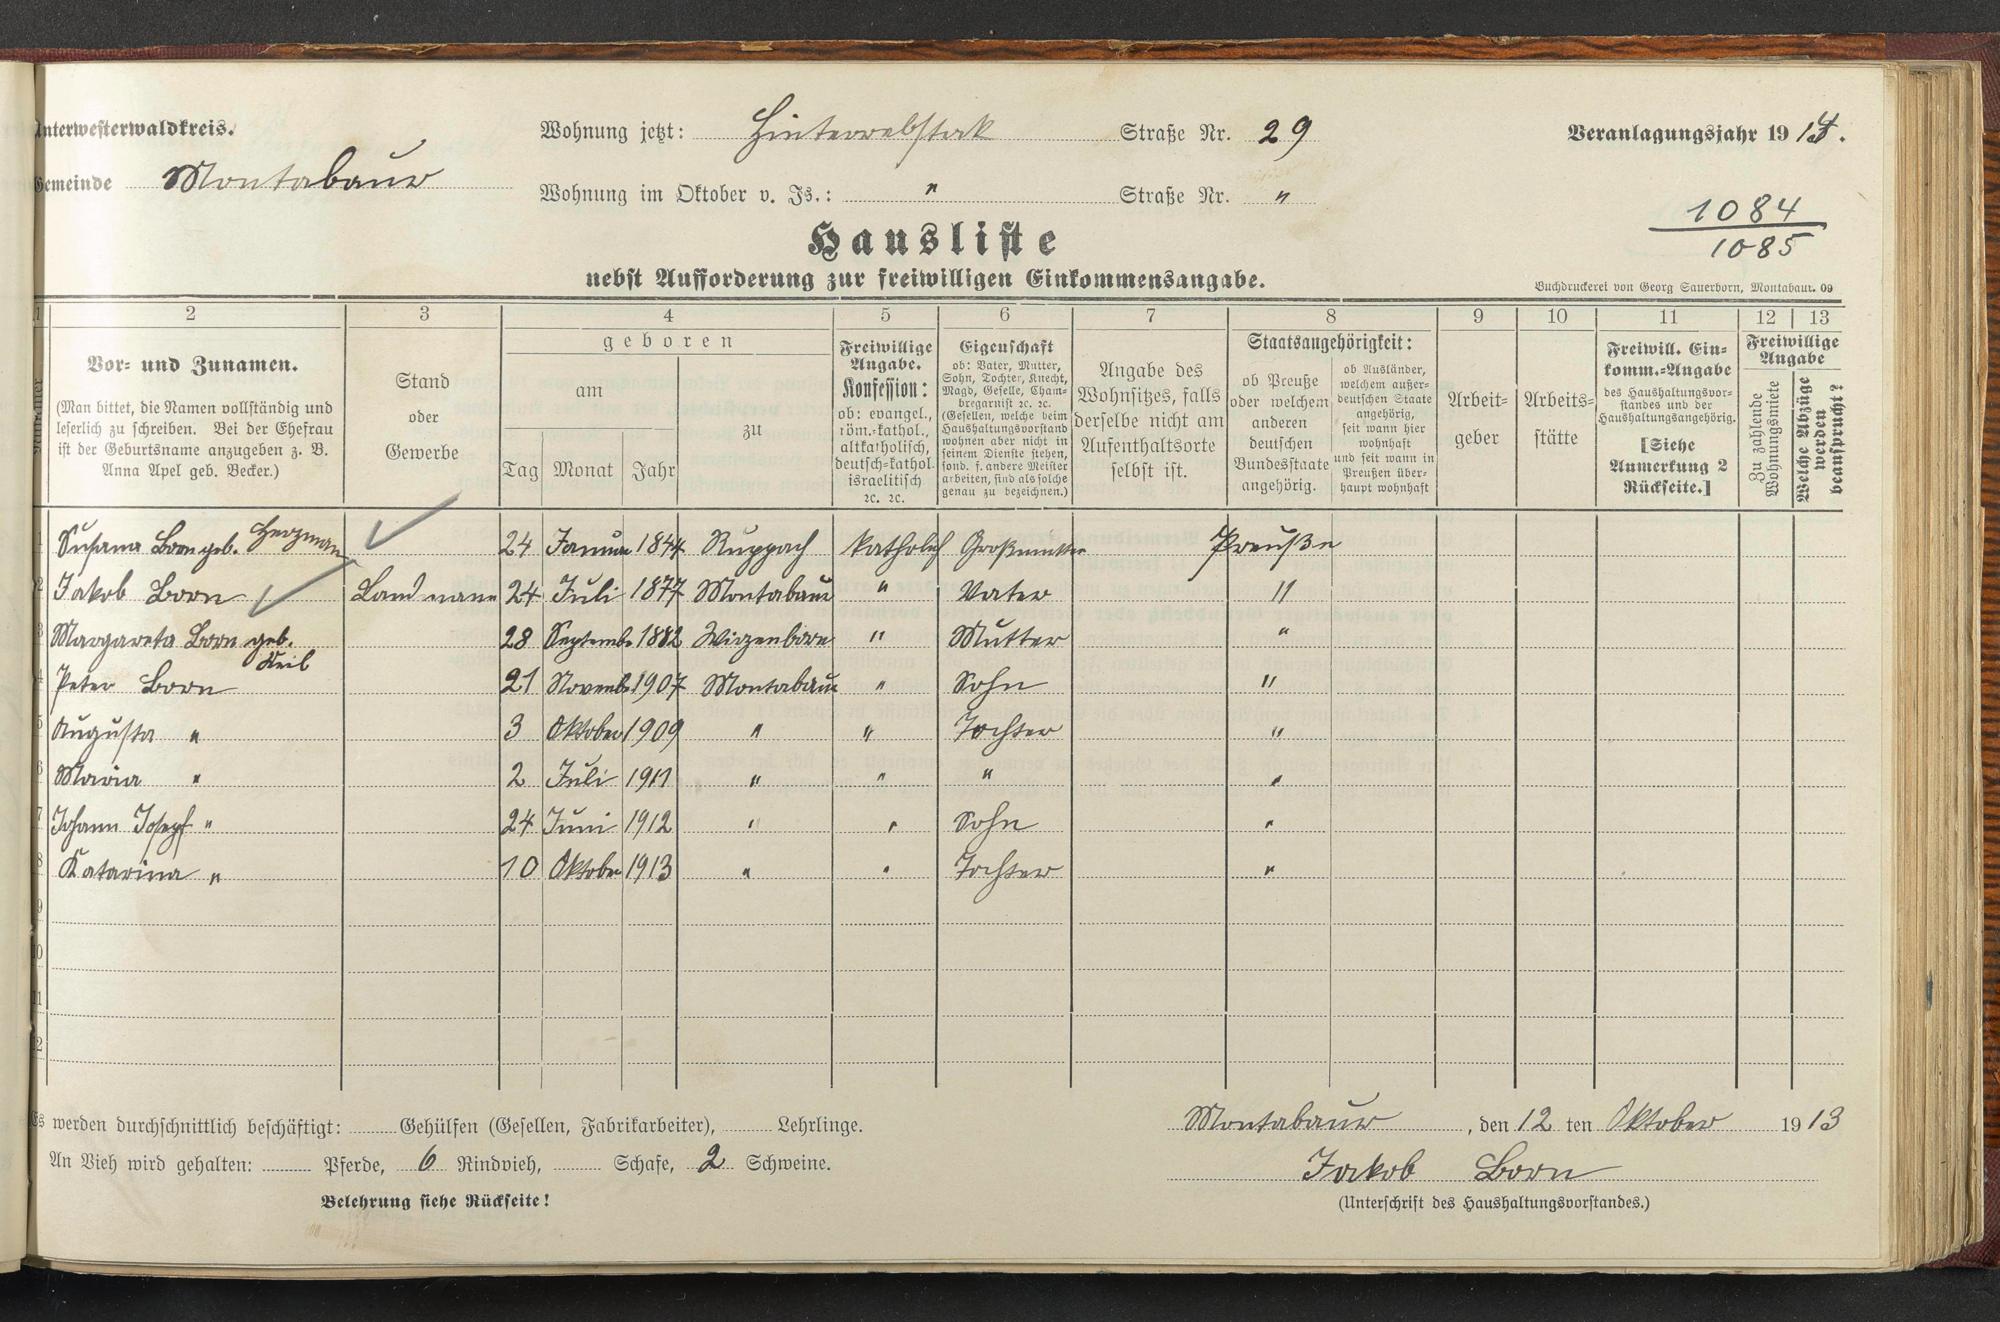 Unterwesterwaldkreis.
Wohnung jetzt: Hinterrebstock Straße Nr. 29
Veranlagungsjahr 1914.
Gemeinde Montabaur
Wohnung im Oktober v. Js.: " Straße Nr. "
1084
1085
Hausliste
nebst Aufforderung zur freiwilligen Einkommensangabe.
Buchdruckerei von Georg Sauerborn, Montabaur. 09
1 2 3 4 5 6 7 8 9 10 11 12 13
Nummer
Vor- und Zunamen.
(Man bittet, die Namen vollständig und
leserlich zu schreiben. Bei der Ehefrau
ist der Geburtsname anzugeben z. B.
Anna Apel geb. Becker.)
Stand
oder
Gewerbe
geboren
am
Tag Monat Jahr
zu
Freiwillige
Angabe.
Konfession:
ob: evangel.,
röm.-kathol.,
altkatholisch,
deutsch-kathol.
israelitisch
ꝛc. ꝛc.
Eigenschaft
ob: Vater, Mutter,
Sohn, Tochter, Knecht,
Magd, Geselle, Cham-
bregarnist ꝛc. ꝛc.
(Gesellen, welche beim
Haushaltungsvorstand
wohnen aber nicht in
seinem Dienste stehen,
sond. f. andere Meister
arbeiten, sind als solche
genau zu bezeichnen.)
Angabe des
Wohnsitzes, falls
derselbe nicht am
Aufenthaltsorte
selbst ist.
Staatsangehörigkeit:
ob Preuße
oder welchem
anderen
deutschen
Bundesstaate
angehörig.
ob Ausländer,
welchem außer-
deutschen Staate
angehörig,
seit wann hier
wohnhaft
und seit wann in
Preußen über-
haupt wohnhaft
Arbeit-
geber
Arbeits-
stätte
Freiwill. Ein-
komm.-Angabe
des Haushaltungsvor-
standes und der
Haushaltungsangehörig.
[Siehe
Anmerkung 2
Rückseite.]
Freiwillige
Angabe
Zu zahlende
Wohnungsmiete
Welche Abzüge
werden
beansprucht?
1 Susana Born geb. Herzman 24 Januar 1844 Ruppach katholisch Großmutter Preuße
2 Jakob Born Landmann 24 Juli 1877 Montabaur " Vater "
3 Margareta Born geb. Keil 28 September 1882 Wirzenborn " Mutter "
4 Peter Born 21 Novemb. 1907 Montabaur " Sohn "
5 Augusta " 3 Oktober 1909 " " Tochter "
6 Maria " 2 Juli 1911 " " " "
7 Johann Josepf " 24 Juni 1912 " " Sohn "
8 Katarina " 10 Oktober 1913 " " Tochter "
9
10
11
12
Es werden durchschnittlich beschäftigt: Gehülfen (Gesellen, Fabrikarbeiter), Lehrlinge.
An Vieh wird gehalten: Pferde, 6 Rindvieh, Schafe, 2 Schweine.
Belehrung siehe Rückseite!
Montabaur, den 12 ten Oktober 1913
Jakob Born
(Unterschrift des Haushaltungsvorstandes.)